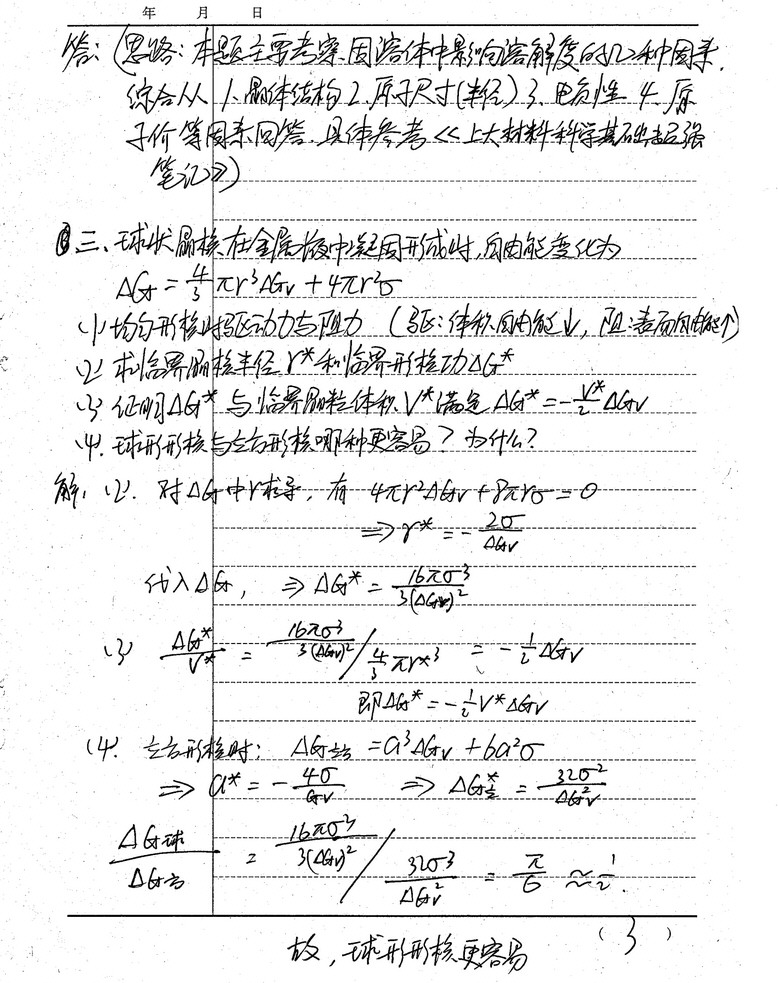 年 月 日
答：(思路：本题主要考察固溶体中影响溶解度的几种因素.
综合从 1.晶体结构 2.原子尺寸(半径) 3.电负性 4.原
子价等因素回答.具体参考《上大材料科学基础超强
笔记》)
三、球状晶核在金属液中凝固形成时,自由能变化为
ΔG = 4/3 πr³ΔGv + 4πr²σ
(1) 均匀形核时驱动力与阻力 (驱：体积自由能↓, 阻：表面自由能↑)
(2) 求临界晶核半径 r* 和临界形核功ΔG*
(3) 证明ΔG* 与临界晶粒体积V*满足 ΔG* = -V*/2 ΔGv
(4). 球形形核与立方形核哪种更容易？为什么？
解：(2). 对ΔG中r求导, 有 4πr²ΔGv + 8πrσ = 0
⇒ r* = - 2σ/ΔGv
代入ΔG, ⇒ ΔG* = 16πσ³/3(ΔGv)²
(3) ΔG*/V* = 16πσ³/3(ΔGv)² / 4/3 πr*³ = - 1/2 ΔGv
即ΔG* = -1/2 V*ΔGv
(4). 立方形核时： ΔG立方 = a³ΔGv + 6a²σ
⇒ a* = - 4σ/Gv ⇒ ΔG*立 = 32σ²/ΔG²v
ΔG球/ΔG方 = 16πσ³/3(ΔGv)² / 32σ³/ΔG²v = π/6 ≈ 1/2.
故, 球形形核更容易
(3)